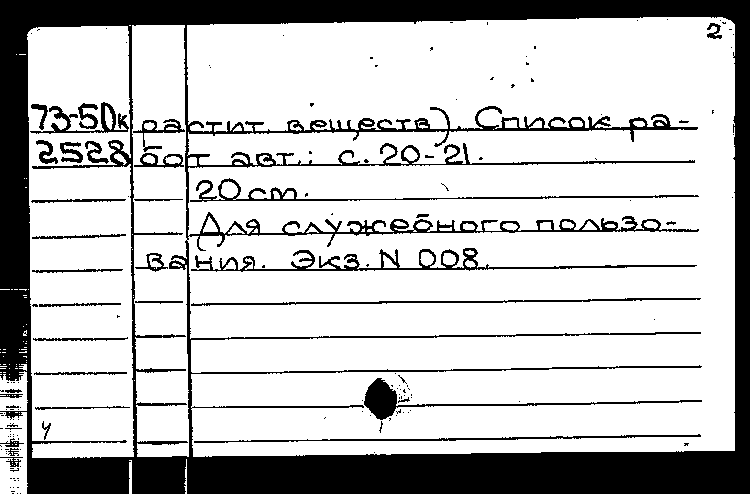 2
73-50к растит. веществ). Список ра-
2528 бот авт.: с. 20-21.
20 cm.
Для служебного пользо-
вания. Экз. N 008.